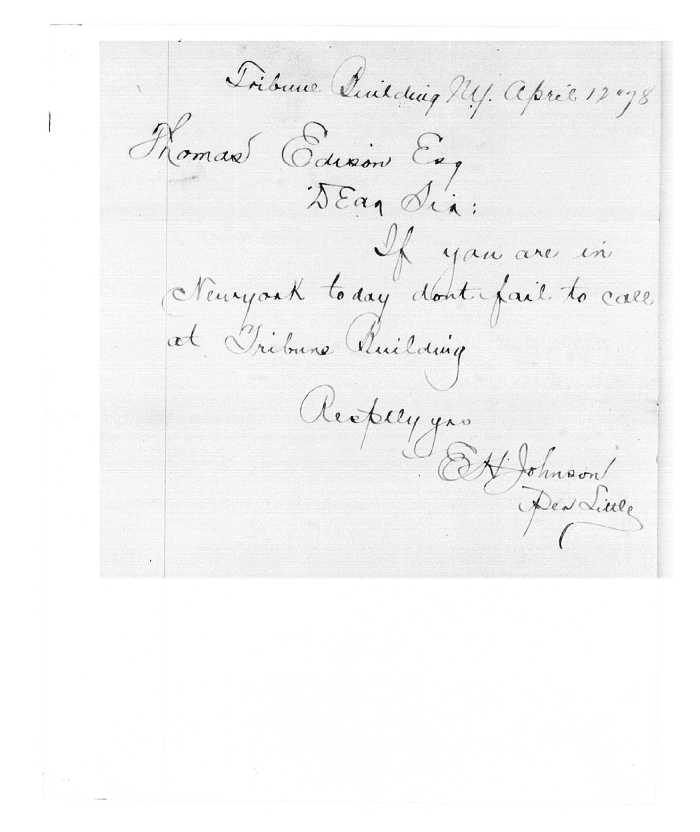 Tribune Building NY. April 12 "78
Thomas Edison Esq
DEar Sir:
If you are in
Newyork to day dont fail to call
at Tribune Building
Respflly yrs
E H Johnson
Per Little